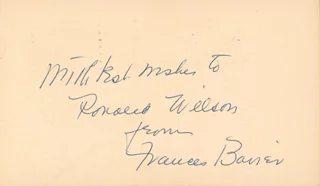 With best wishes to
Ronald Wilson
from
Frances Bavier